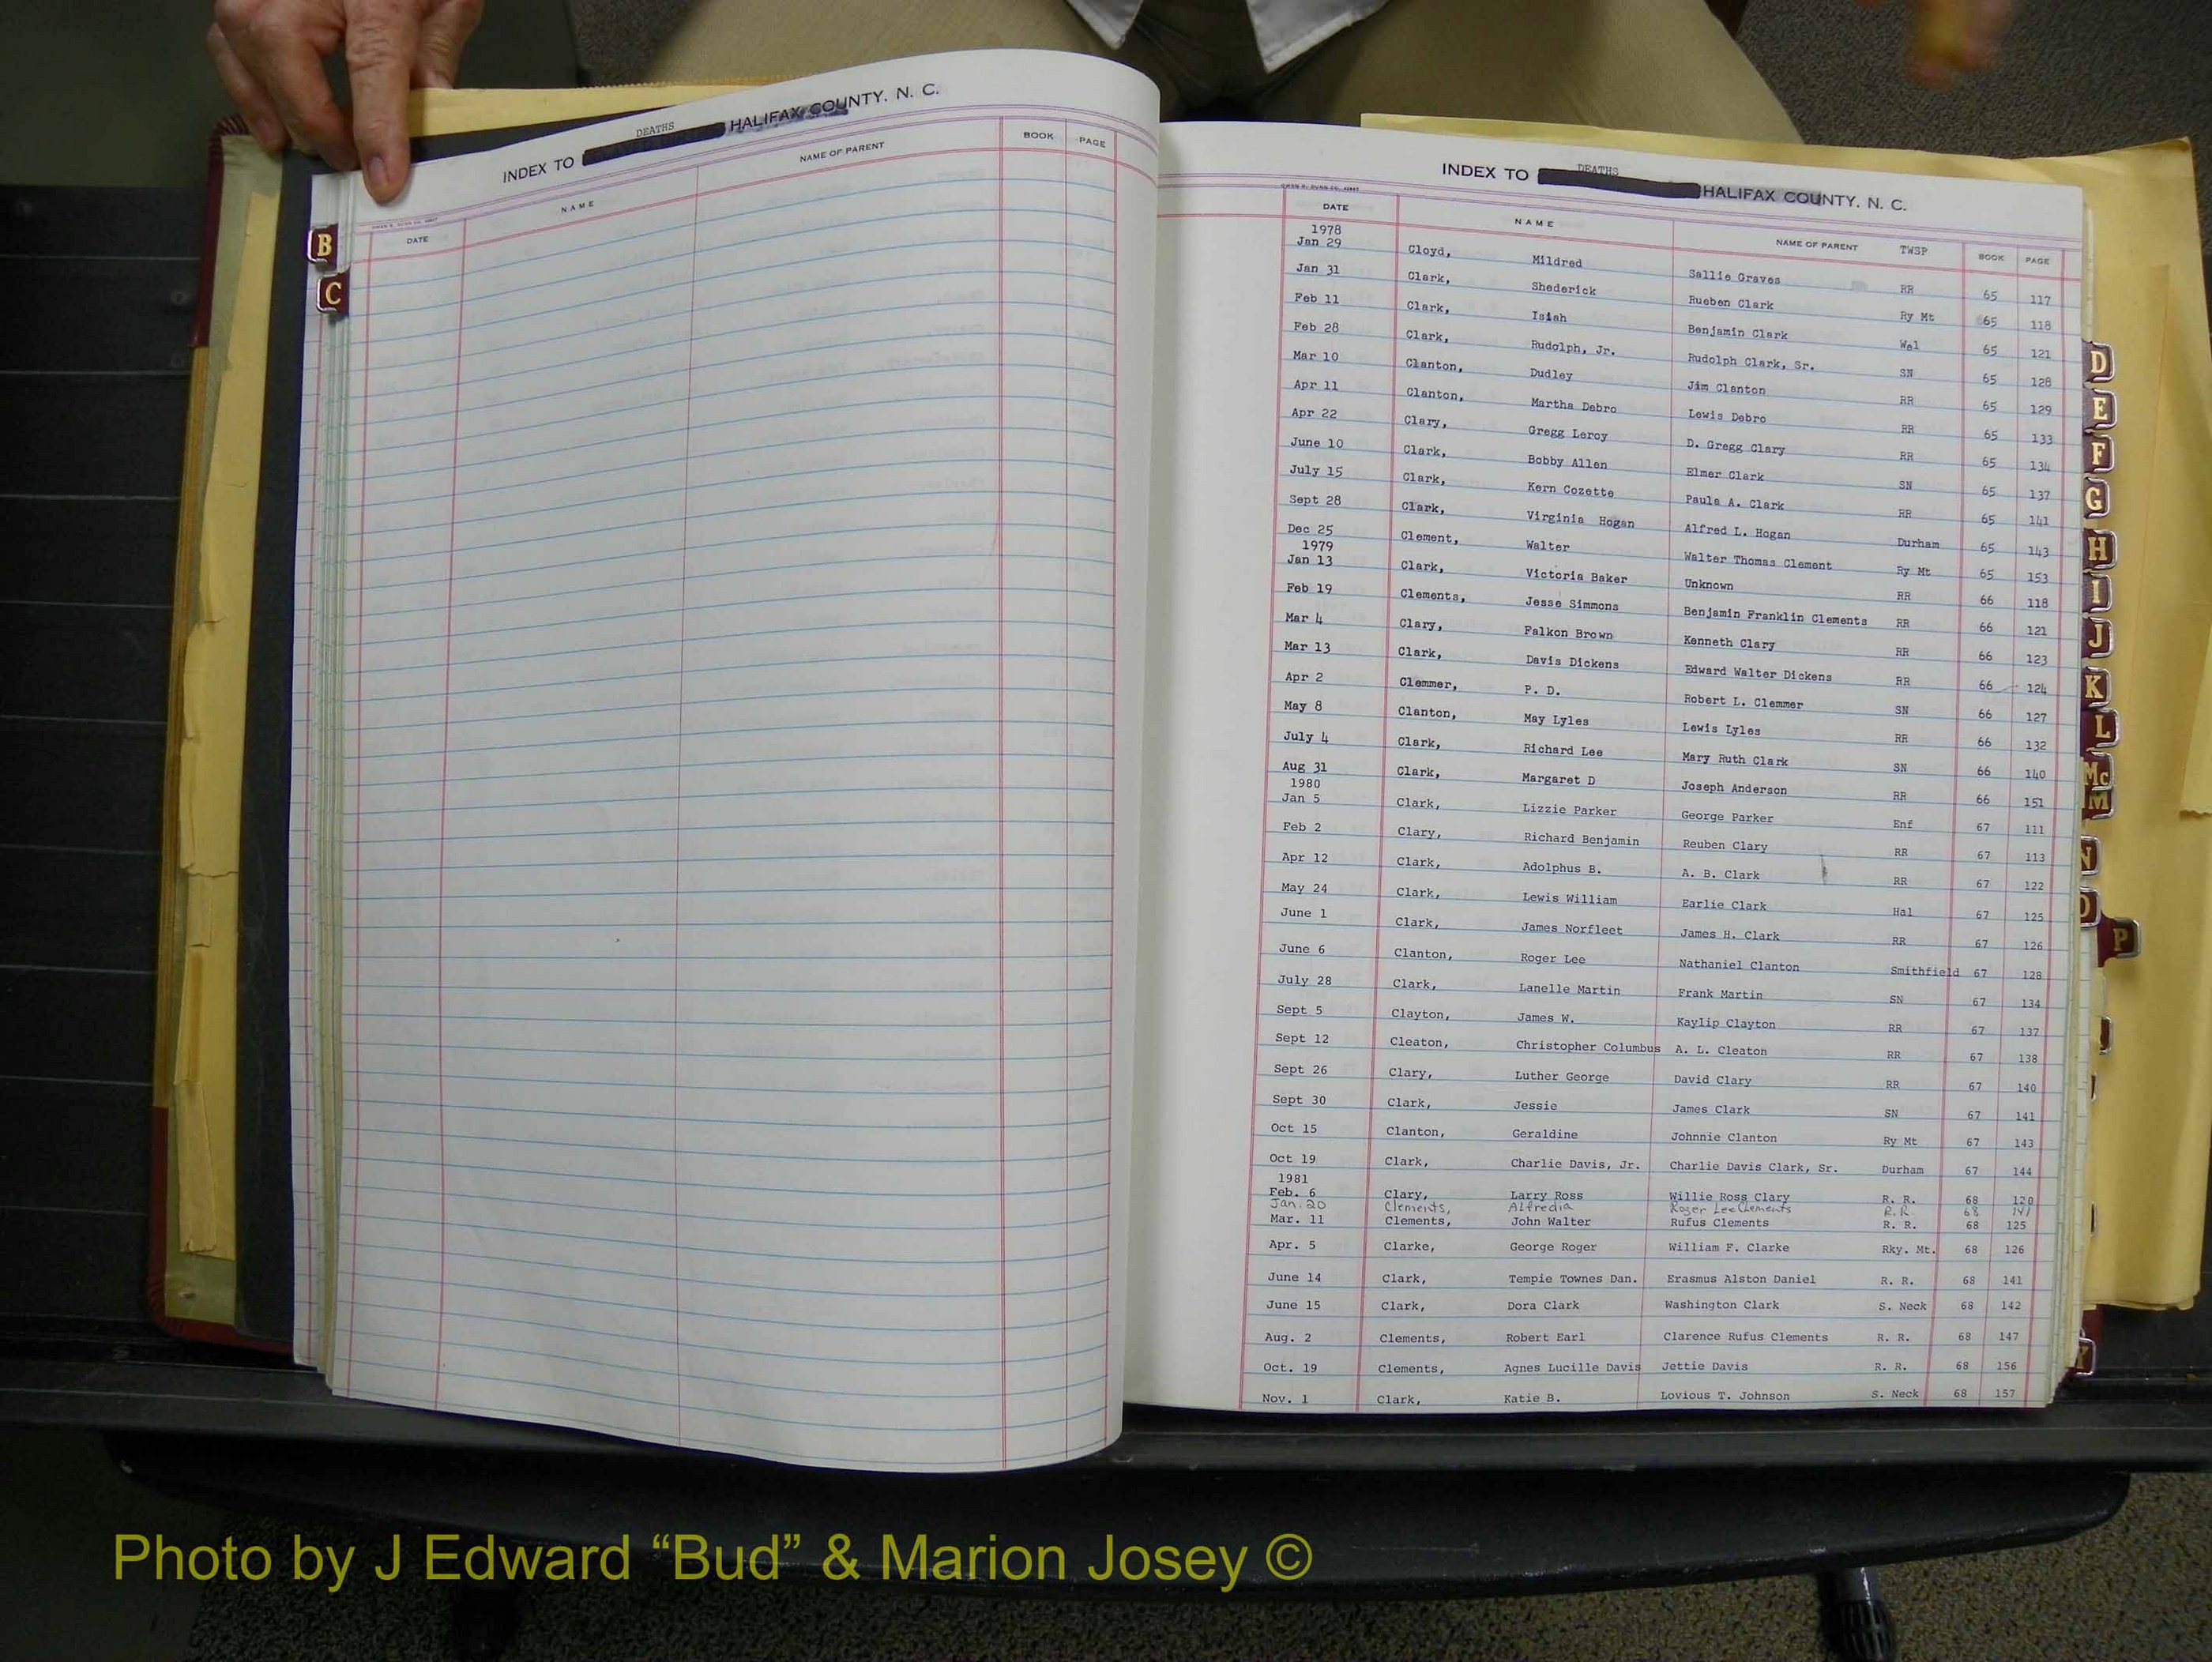 INDEX TO DEATHS HALIFAX COUNTY, N. C.
DATE NAME NAME OF PARENT BOOK PAGE
B
C
INDEX TO DEATHS HALIFAX COUNTY, N. C.
DATE NAME NAME OF PARENT TWSP BOOK PAGE
1978
Jan 29 Cloyd, Mildred Sallie Graves RR 65 117
Jan 31 Clark, Shederick Rueben Clark Ry Mt 65 118
Feb 11 Clark, Isiah Benjamin Clark Wel 65 121
Feb 28 Clark, Rudolph, Jr. Rudolph Clark, Sr. SN 65 128
Mar 10 Clanton, Dudley Jim Clanton RR 65 129
Apr 11 Clanton, Martha Debro Lewis Debro RR 65 133
Apr 22 Clary, Gregg Leroy D. Gregg Clary RR 65 134
June 10 Clark, Bobby Allen Elmer Clark SN 65 137
July 15 Clark, Kern Cozette Paula A. Clark RR 65 141
Sept 28 Clark, Virginia Hogan Alfred L. Hogan Durham 65 143
Dec 25 Clement, Walter Walter Thomas Clement Ry Mt 65 153
1979
Jan 13 Clark, Victoria Baker Unknown RR 66 118
Feb 19 Clements, Jesse Simmons Benjamin Franklin Clements RR 66 121
Mar 4 Clary, Falkon Brown Kenneth Clary RR 66 123
Mar 13 Clark, Davis Dickens Edward Walter Dickens RR 66 124
Apr 2 Clemmer, P. D. Robert L. Clemmer SN 66 127
May 8 Clanton, May Lyles Lewis Lyles RR 66 132
July 4 Clark, Richard Lee Mary Ruth Clark SN 66 140
Aug 31 Clark, Margaret D Joseph Anderson RR 66 151
1980
Jan 5 Clark, Lizzie Parker George Parker Enf 67 111
Feb 2 Clary, Richard Benjamin Reuben Clary RR 67 113
Apr 12 Clark, Adolphus B. A. B. Clark RR 67 122
May 24 Clark, Lewis William Earlie Clark Hal 67 125
June 1 Clark, James Norfleet James H. Clark RR 67 126
June 6 Clanton, Roger Lee Nathaniel Clanton Smithfield 67 128
July 28 Clark, Lanelle Martin Frank Martin SN 67 134
Sept 5 Clayton, James W. Kaylip Clayton RR 67 137
Sept 12 Cleaton, Christopher Columbus A. L. Cleaton RR 67 138
Sept 26 Clary, Luther George David Clary RR 67 140
Sept 30 Clark, Jessie James Clark SN 67 141
Oct 15 Clanton, Geraldine Johnnie Clanton Ry Mt 67 143
Oct 19 Clark, Charlie Davis, Jr. Charlie Davis Clark, Sr. Durham 67 144
1981
Feb. 6 Clary, Larry Ross Willie Ross Clary R. R. 68 120
Jan. 20 Clements, Alfredia Roger Lee Clements R.R. 68 141
Mar. 11 Clements, John Walter Rufus Clements R. R. 68 125
Apr. 5 Clarke, George Roger William F. Clarke Rky. Mt. 68 126
June 14 Clark, Tempie Townes Dan. Erasmus Alston Daniel R. R. 68 141
June 15 Clark, Dora Clark Washington Clark S. Neck 68 142
Aug. 2 Clements, Robert Earl Clarence Rufus Clements R. R. 68 147
Oct. 19 Clements, Agnes Lucille Davis Jettie Davis R. R. 68 156
Nov. 1 Clark, Katie B. Lovious T. Johnson S. Neck 68 157
D
E
F
G
H
I
J
K
L
Mc
M
N
O
P
Y
Photo by J Edward “Bud” & Marion Josey ©